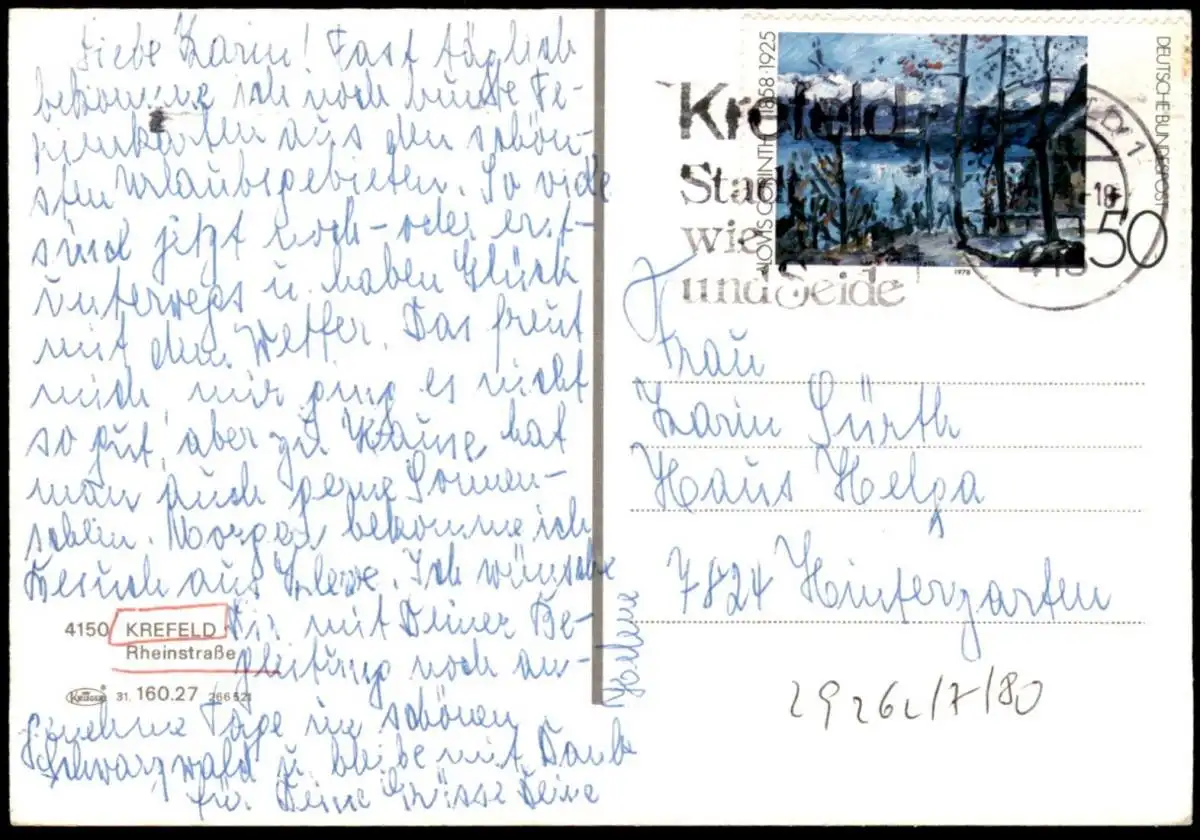 Liebe Karin! Fast täglich
bekomme ich noch bunte Fe-
rienkarten aus den schön-
sten Urlaubsgebieten. So viele
sind jetzt noch - oder erst -
unterwegs u. haben Glück
mit dem Wetter. Das freut
mich, mir ging es nicht
so gut, aber zu Hause hat
man auch gerne Sonnen-
schein. Morgen bekomme ich
Besuch aus Kleve. Ich wünsche
Dir mit Deiner Be-
gleitung noch an-
genehme Tage im schönen
Schwarzwald u. bleibe mit Dank
für Deine Grüsse Deine
Helene
4150 KREFELD
Rheinstraße
Krüger
31. 160.27 266 521
LOVIS CORINTH 1858·1925
DEUTSCHE BUNDESPOST
50
1978
Krefeld
Stadt
wie
und Seide
1
-18
415
Frau
Karin Gürth
Haus Helga
7824 Hintergarten